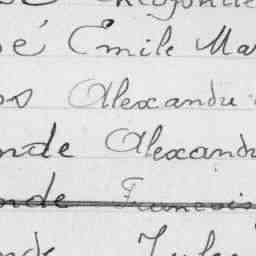 é Emile Ma
os Alexandre
nde Alexandr
nde Francois
nde Jules